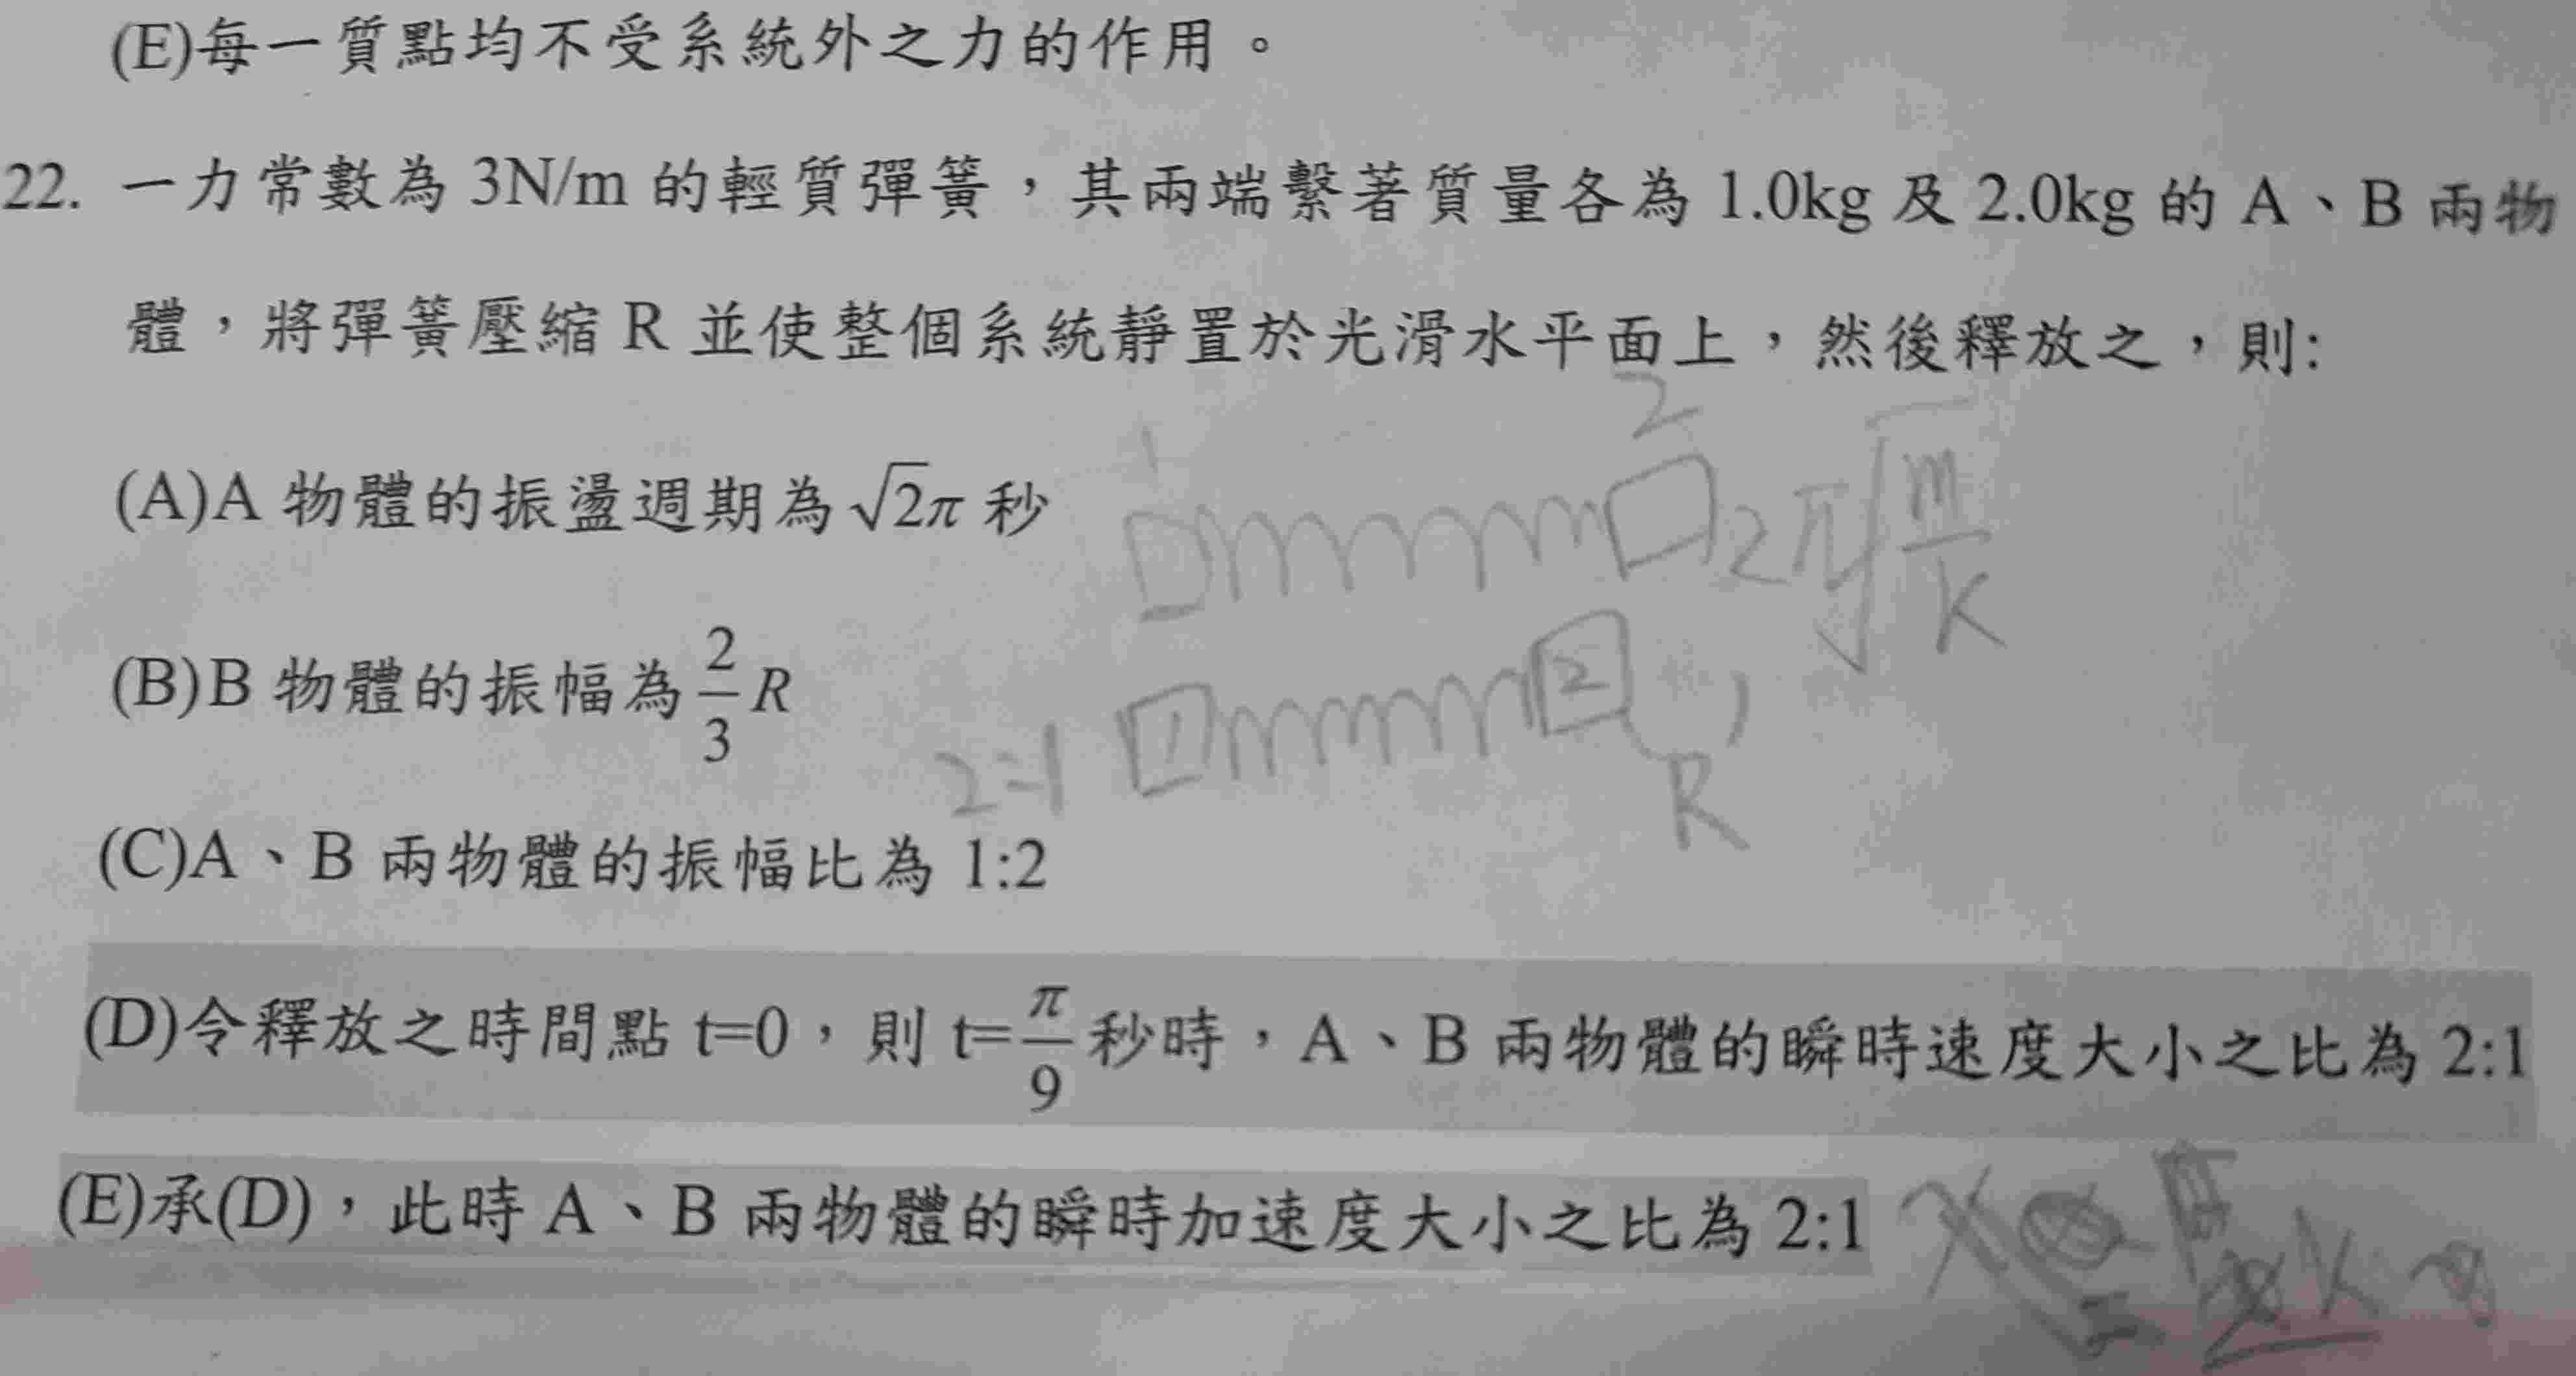 (E)每一質點均不受系統外之力的作用。
22. 一力常數為 3N/m 的輕質彈簧，其兩端繫著質量各為 1.0kg 及 2.0kg 的 A、B 兩物
體，將彈簧壓縮 R 並使整個系統靜置於光滑水平面上，然後釋放之，則:
2
1
(A)A 物體的振盪週期為 √2π 秒
2π√(m/K)
(B)B 物體的振幅為 2/3 R
2:1
1
2
R
(C)A、B 兩物體的振幅比為 1:2
(D)令釋放之時間點 t=0，則 t=π/9 秒時，A、B 兩物體的瞬時速度大小之比為 2:1
(E)承(D)，此時 A、B 兩物體的瞬時加速度大小之比為 2:1